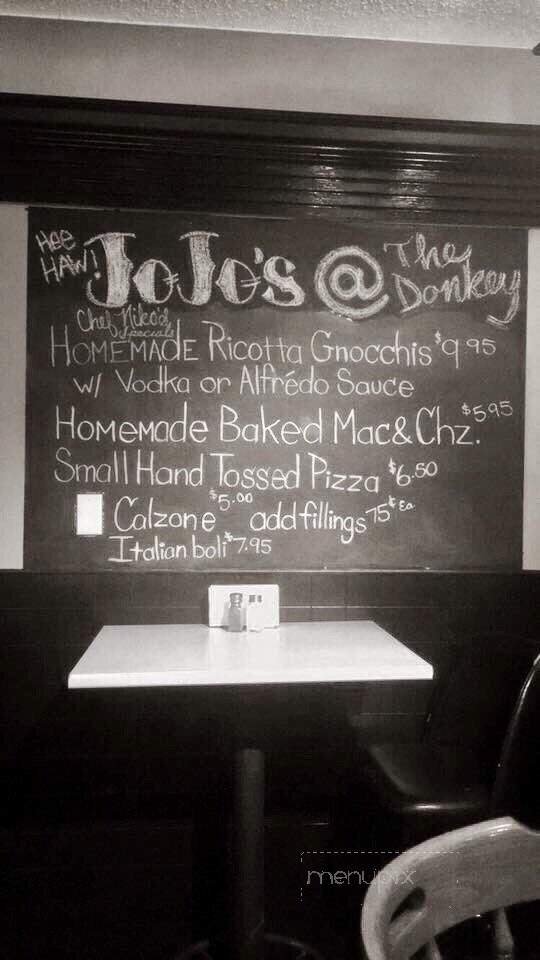 Hee HAW! JoJo's @ The Donkey
Chef Niko's Specials
HOMEMADE Ricotta Gnocchis $9.95
w/ Vodka or Alfrédo Sauce
HOMEMADE Baked Mac&Chz. $5.95
Small Hand Tossed Pizza $6.50
Calzone $5.00 add fillings 75¢ Ea
Italian boli $7.95
menupix